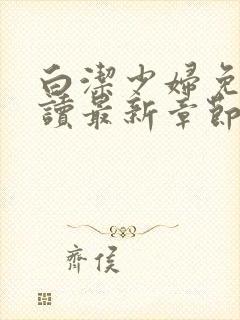 白潔少婦免
讀最新章節
齊侯